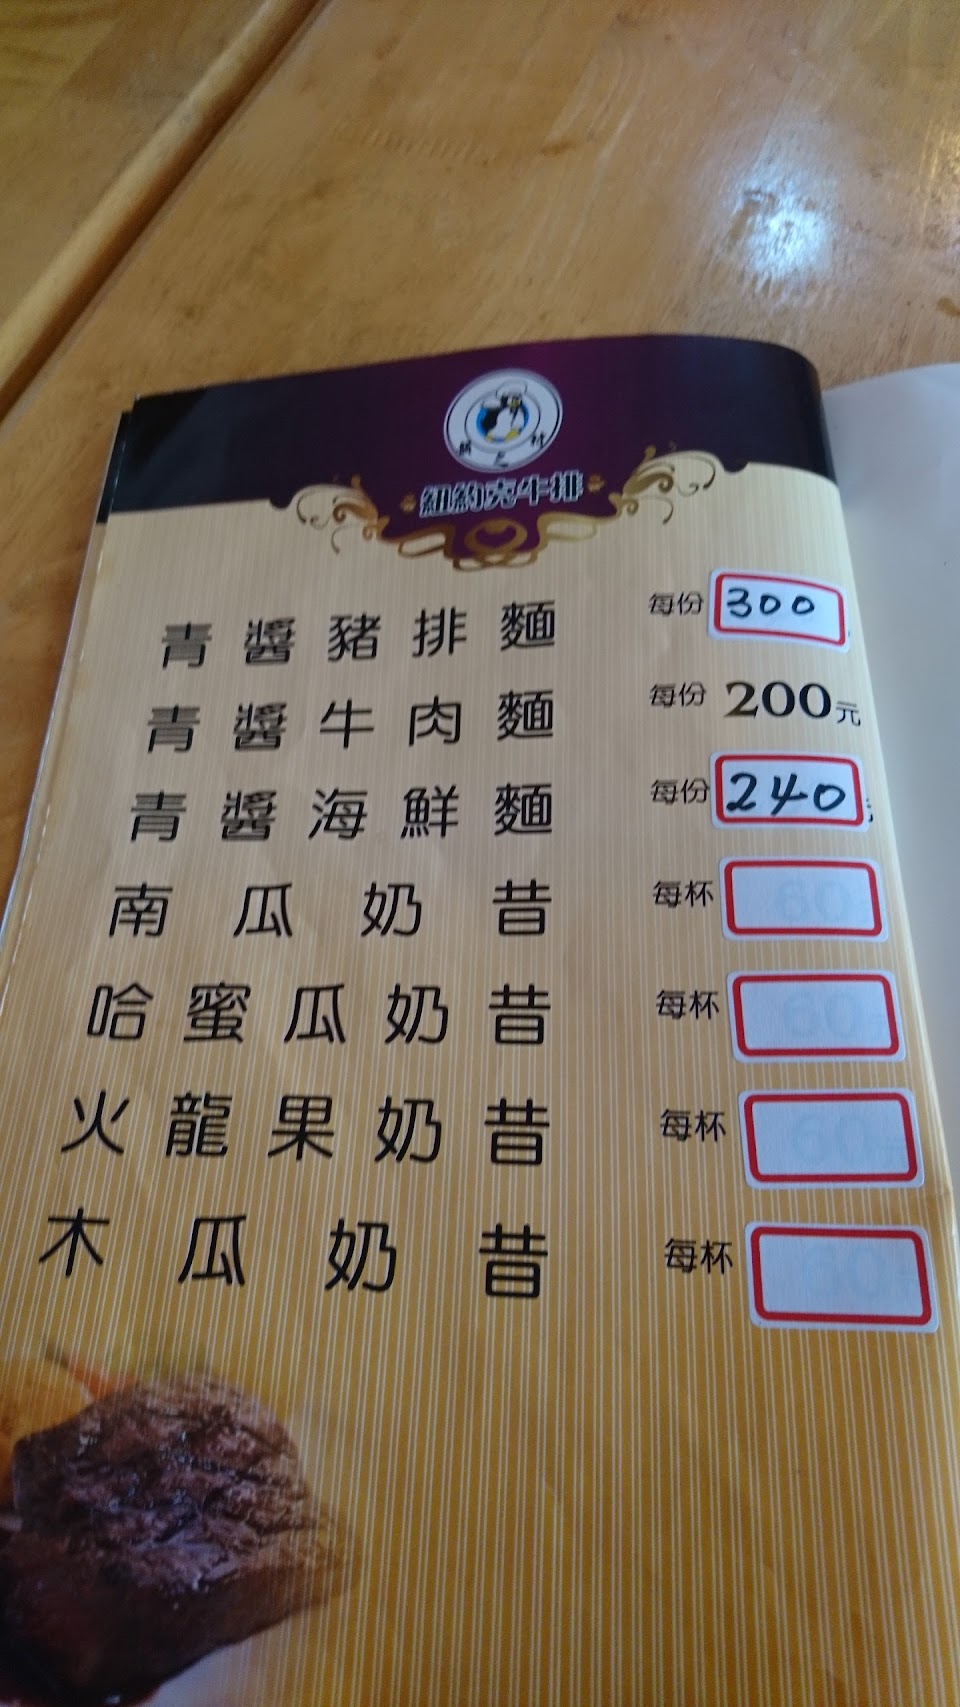 紐約克牛排
青醬豬排麵 每份 300
青醬牛肉麵 每份 200元
青醬海鮮麵 每份 240
南瓜奶昔 每杯
哈蜜瓜奶昔 每杯
火龍果奶昔 每杯
木瓜奶昔 每杯